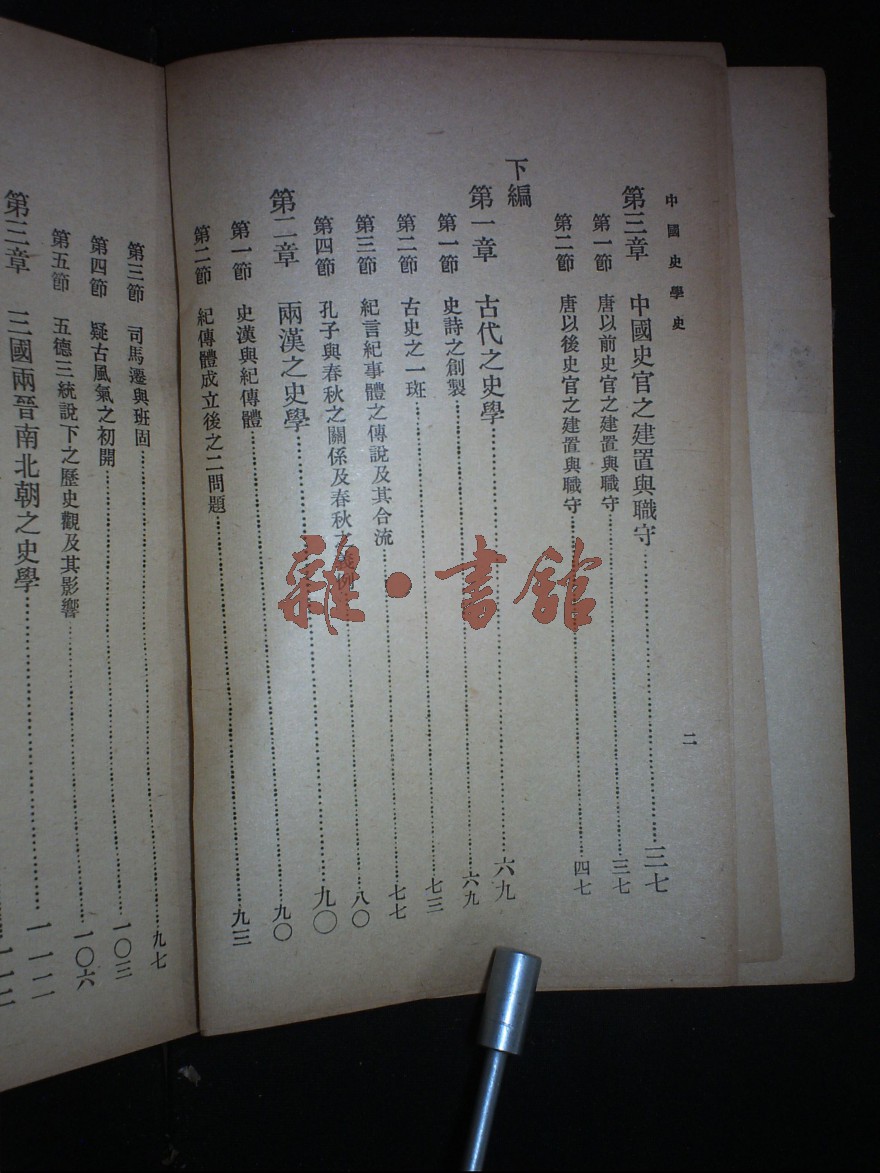 中國史學史
二
第三章 中國史官之建置與職守……三七
第一節 唐以前史官之建置與職守……三七
第二節 唐以後史官之建置與職守……四七
下編
第一章 古代之史學……六九
第一節 史詩之創製……六九
第二節 古史之一斑……七三
第三節 紀言紀事體之傳說及其合流……七七
第四節 孔子與春秋之關係及春秋之義例……八〇
第二章 兩漢之史學……九〇
第一節 史漢與紀傳體……九〇
第二節 紀傳體成立後之二問題……九三
第三節 司馬遷與班固……九七
第四節 疑古風氣之初開……一〇三
第五節 五德三統說下之歷史觀及其影響……一〇六
第三章 三國兩晉南北朝之史學……一一二
一一二
雜·書館